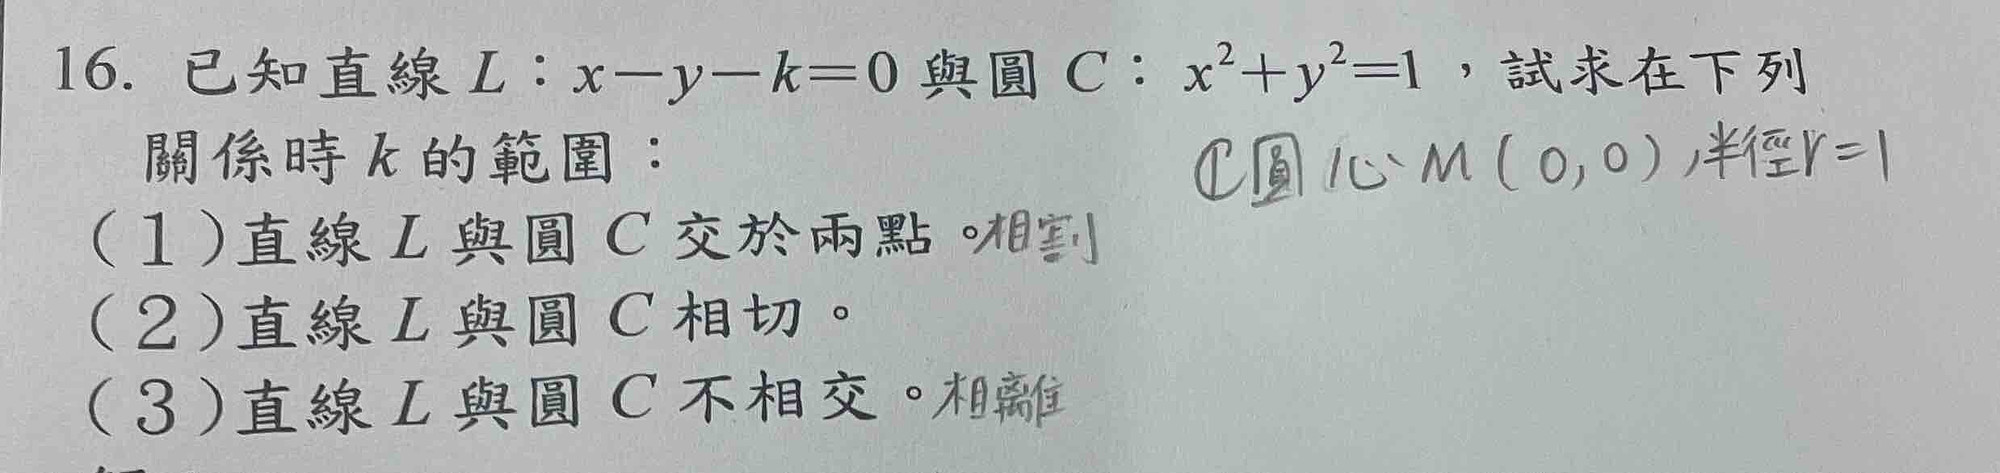 16. 已知直線 L：x－y－k＝0 與圓 C：x²＋y²＝1，試求在下列
關係時 k 的範圍：
C圓心 M(0,0),半徑r=1
(1)直線 L 與圓 C 交於兩點。相割
(2)直線 L 與圓 C 相切。
(3)直線 L 與圓 C 不相交。相離